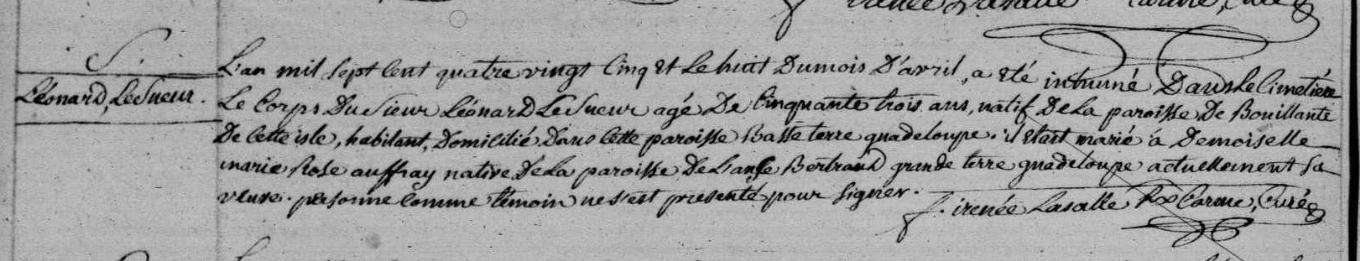 irenée Lasalle Carme, Curé
S.
Léonard, LeSueur.
L'an mil sept Cent quatre vingt Cinq et Le huit Du mois D'avril, a été inhumé Dans Le Cimetière
Le Corps Du Sieur Léonard LeSueur agé De Cinquante trois ans, natif De La paroisse De Bouillante
De Cette isle, habitant, Domicilié Dans Cette paroisse Basse terre guadeloupe. il etait marié à Demoiselle
marie Rose auffray native De La paroisse De L'anse Bertrand grande terre guadeloupe actuellement sa
veuve. personne Comme témoin ne s'est presenté pour signer.
f. irenée Lasalle Carme, Curé